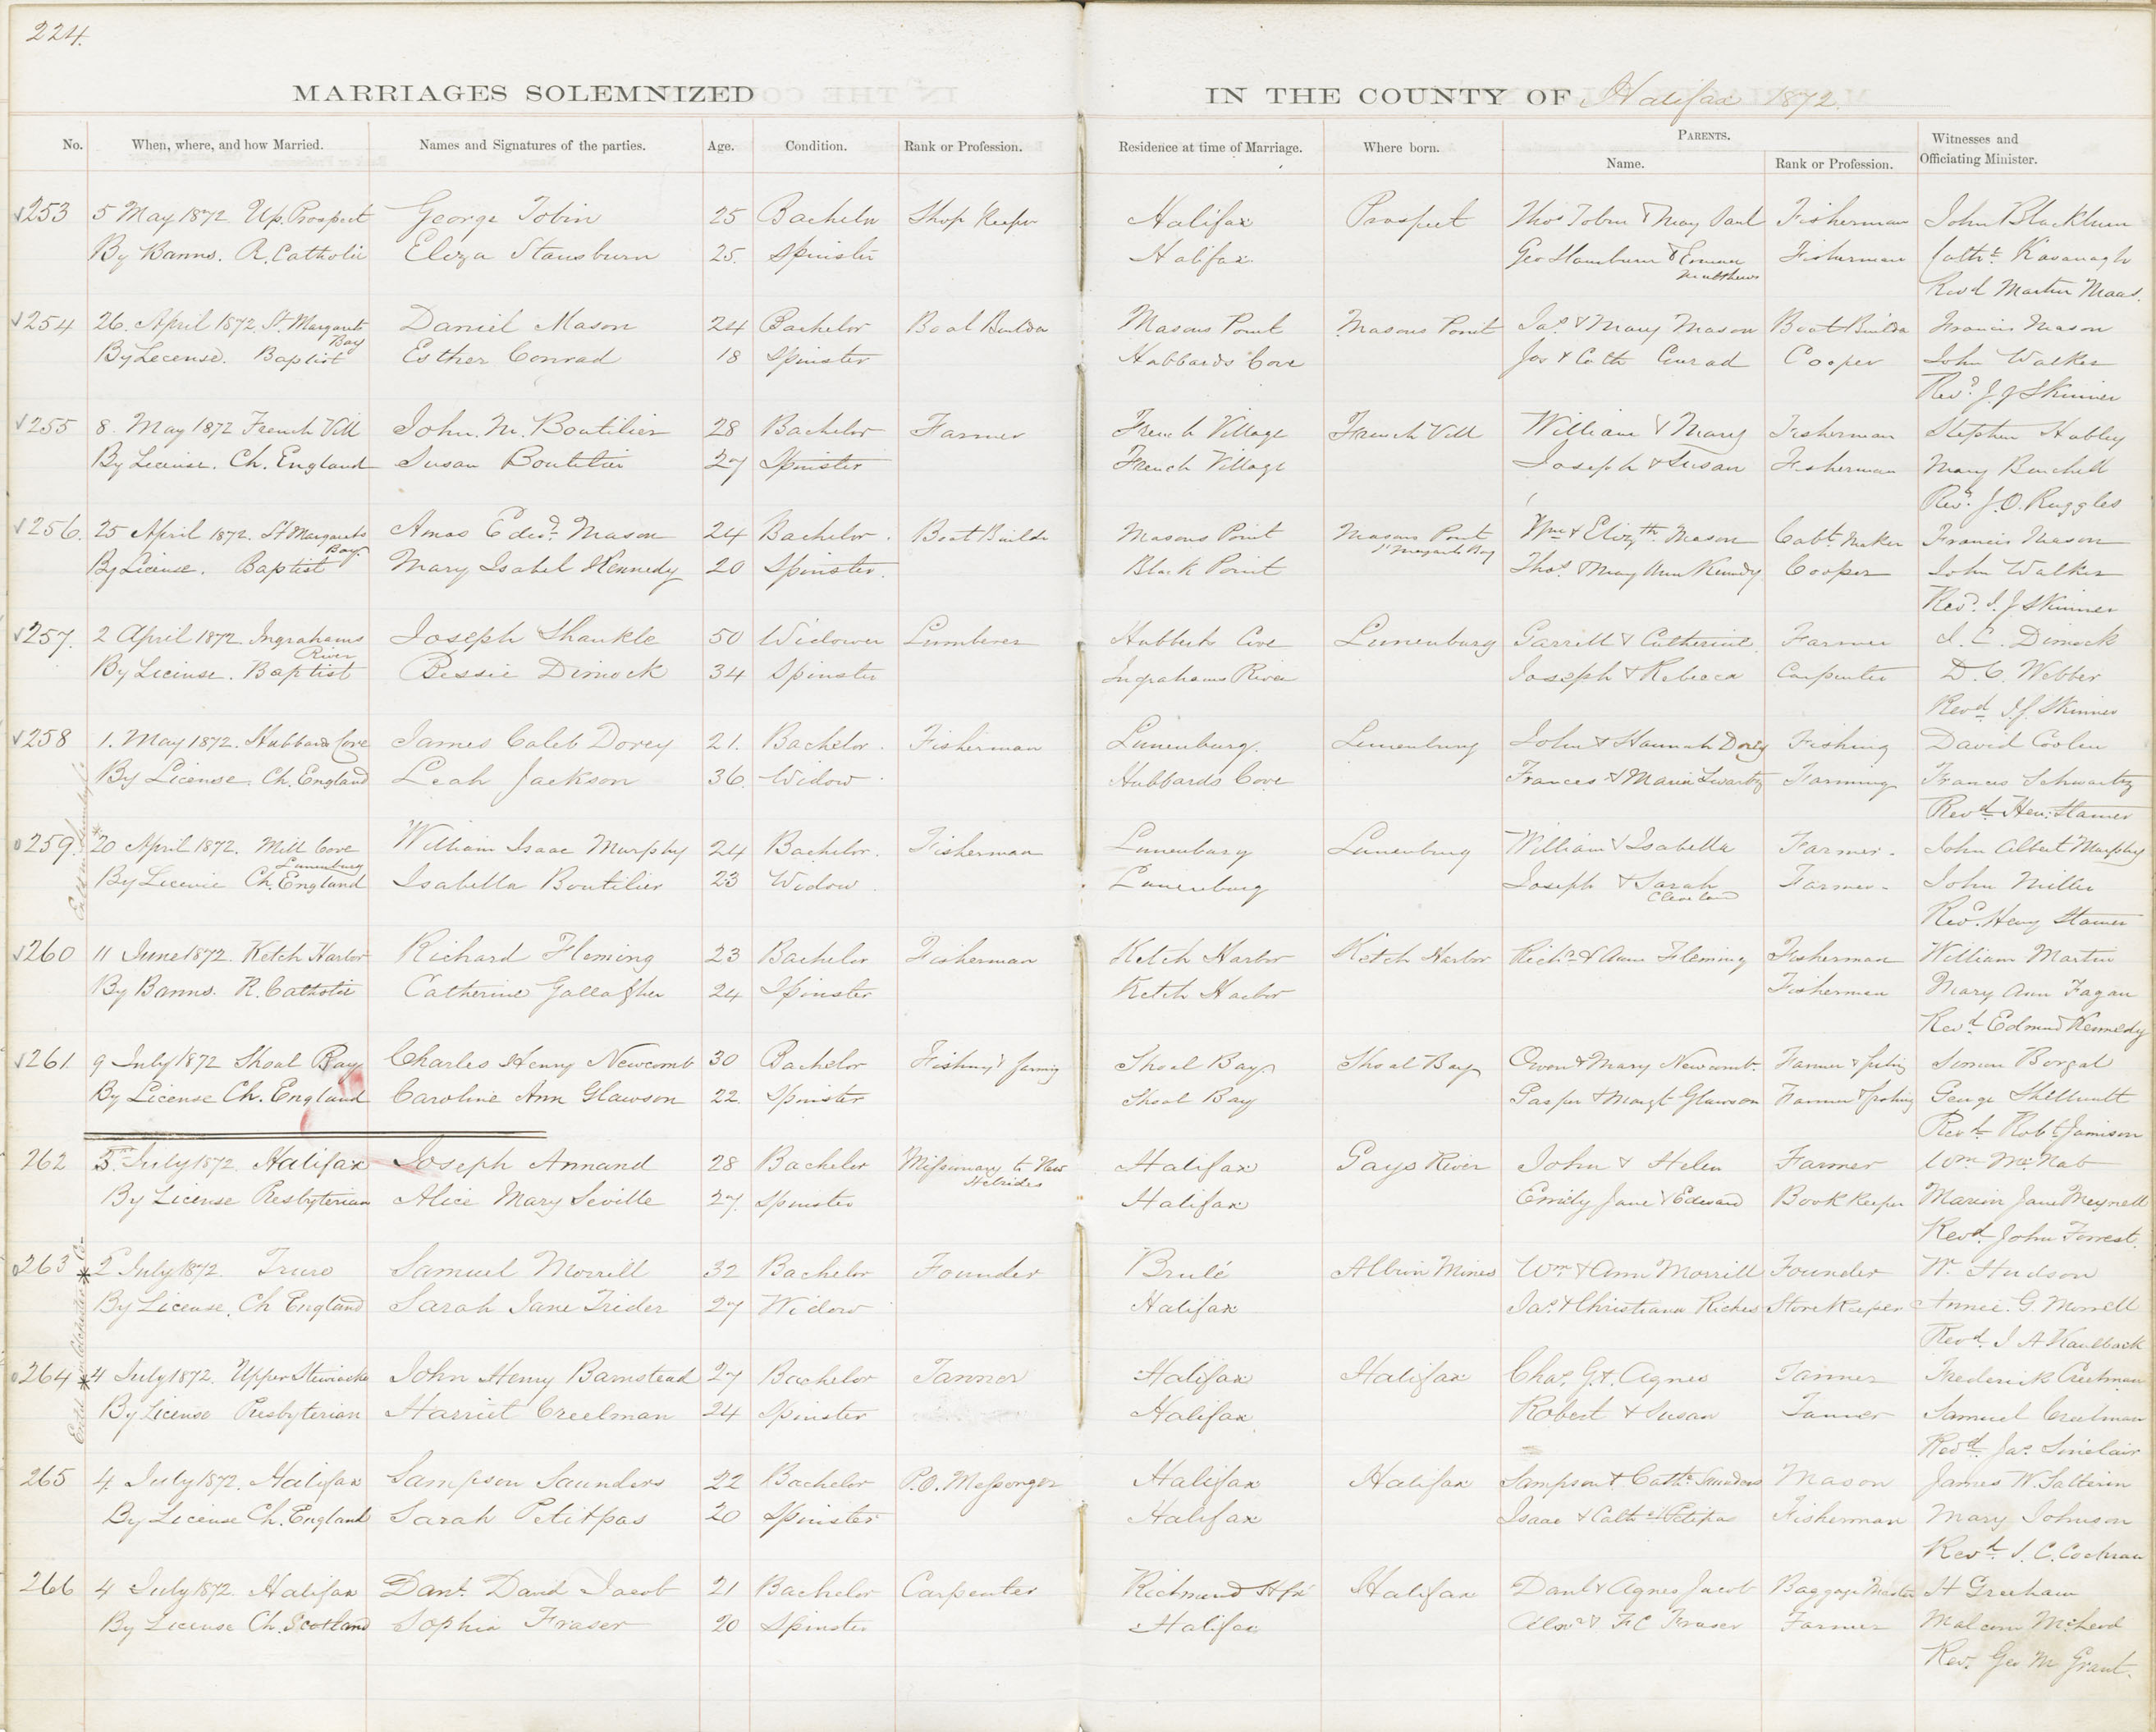 224.
MARRIAGES SOLEMNIZED IN THE COUNTY OF Halifax 1872.
No. When, where, and how Married. Names and Signatures of the parties. Age. Condition. Rank or Profession. Residence at time of Marriage. Where born. PARENTS. Name. Rank or Profession. Witnesses and Officiating Minister.
253 5 May 1872 Up. Prospect George Tobin 25 Bachelor Shop Keeper Halifax Prospect Thos Tobin & Mary Paul Fisherman John Blackburn
By Banns. R. Catholic Eliza Stausburn 25. Spinster Halifax Geo Stausburn & Emma Matthews Fisherman Cathe Kavanagh
Revd Martin Maas.
254 26. April 1872. St. Margarets Bay Daniel Mason 24 Bachelor Boat Builder Masons Point Masons Point Jas & Mary Mason Boat Builder Francis Mason
By License. Baptist Esther Conrad 18 Spinster Hubbards Cove Jos & Cath Conrad Cooper John Walker
Revd. J. J Skinner
255 8. May 1872 French Vill John. M. Boutilier 28 Bachelor Farmer French Village French Vill William & Mary Fisherman Stephen Hubley
By License. Ch. England Susan Boutilier 27 Spinster French Village Joseph & Susan Fisherman Mary Burchell
Revd. J. O. Ruggles
256. 25 April 1872. St Margarets Bay Amos Edwd. Mason 24 Bachelor. Boat Builder Masons Point Masons Point St Margarets Bay Wm & Elizth. Mason Cabt. Maker Francis Mason
By License. Baptist Mary Isabel Kennedy 20 Spinster. Black Point Thos. & Mary Ann Kennedy Cooper John Walker
Revd. J. J Skinner
257. 2 April 1872 Ingrahams River Joseph Shankle 50 Widower Lumberer Hubbards Cove Lunenburg Garrett & Catherine Farmer J. C. Dimock
By License. Baptist Bessie Dimock 34 Spinster Ingrahams River Joseph & Rebecca Carpenter D. C. Webber
Revd J. J. Skinner
258 1. May 1872. Hubbards Cove James Caleb Dorey 21. Bachelor. Fisherman Lunenburg. Lunenburg John & Hannah Dorey Fishing David Coolen
By License. Ch. England Leah Jackson 36. Widow. Hubbards Cove Frances & Maria Swartz Farming Francis Schwartz
Revd Hen: Stamer
259. *20 April 1872. Mill Cove Lunenburg William Isaac Murphy 24 Bachelor. Fisherman Lunenburg Lunenburg William & Isabella Farmer. John Albert Murphy
By License Ch. England Isabella Boutilier 23 Widow. Lunenburg Joseph & Sarah Cleveland Farmer. John Miller
Revd. Henry Stamer
260 11 June 1872. Ketch Harbor Richard Fleming 23 Bachelor Fisherman Ketch Harbor Ketch Harbor Richd & Ann Fleming Fisherman William Martin
By Banns. R. Catholic Catherine Gallagher 24 Spinster Ketch Harbor Fisherman Mary Ann Fagan
Revd. Edmund Kennedy
261. 9 July 1872 Shoal Bay Charles Henry Newcomb 30 Bachelor Fishing & farming Shoal Bay Shoal Bay Owen & Mary Newcomb. Farmer & fishing Simon Borgal
By License Ch. England Caroline Ann Glawson 22. Spinster Shoal Bay Gasper & Margt Glawson Farmer & fishing George Shellnutt
Revd. Robt. Jamison
262 3. July 1872. Halifax Joseph Annand 28 Bachelor Missionary to New Hebrides Halifax Gays River John & Helen Farmer Wm McNab
By License Presbyterian Alice Mary Seville 27. Spinster Halifax Emily Jane & Edward Book Keeper Marion Jane Meynell
Revd. John Forrest.
263 *2 July 1872. Truro Samuel Morrill 32 Bachelor Founder Brulé Albion Mines Wm & Ann Morrill Founder W. Hudson
By License, Ch England Sarah Jane Trider 27 Widow Halifax Jas. & Christiana Riches Store Keeper Annie. G. Morrell
Revd. J A Kaulback
264 *4 July 1872. Upper Stewiacke John Henry Bamstead 27 Bachelor Tanner Halifax Halifax Chas. G. & Agnes Tanner Frederick Creelman
By License Presbyterian Harriet Creelman 24 Spinster Halifax Robert & Susan Tanner Samuel Creelman
Revd. Jas. Sinclair
265 4. July 1872. Halifax Sampson Saunders 22 Bachelor P.O. Messenger Halifax Halifax Sampson & Cathe. Saunders Mason James W. Salterin
By License Ch. England Sarah Petitpas 20 Spinster Halifax Isaac & Cathe Petipa Fisherman Mary Johnson
Revd. J. C. Cochran
266 4 July 1872. Halifax Danl. David Jacob 21 Bachelor Carpenter Richmond Hfx Halifax Danl & Agnes Jacob Baggage Master H Greeham
By License Ch. Scotland Sophia Fraser 20 Spinster Halifax Alexr & F C Fraser Farmer Malcom McLeod
Rev. Geo M Grant.